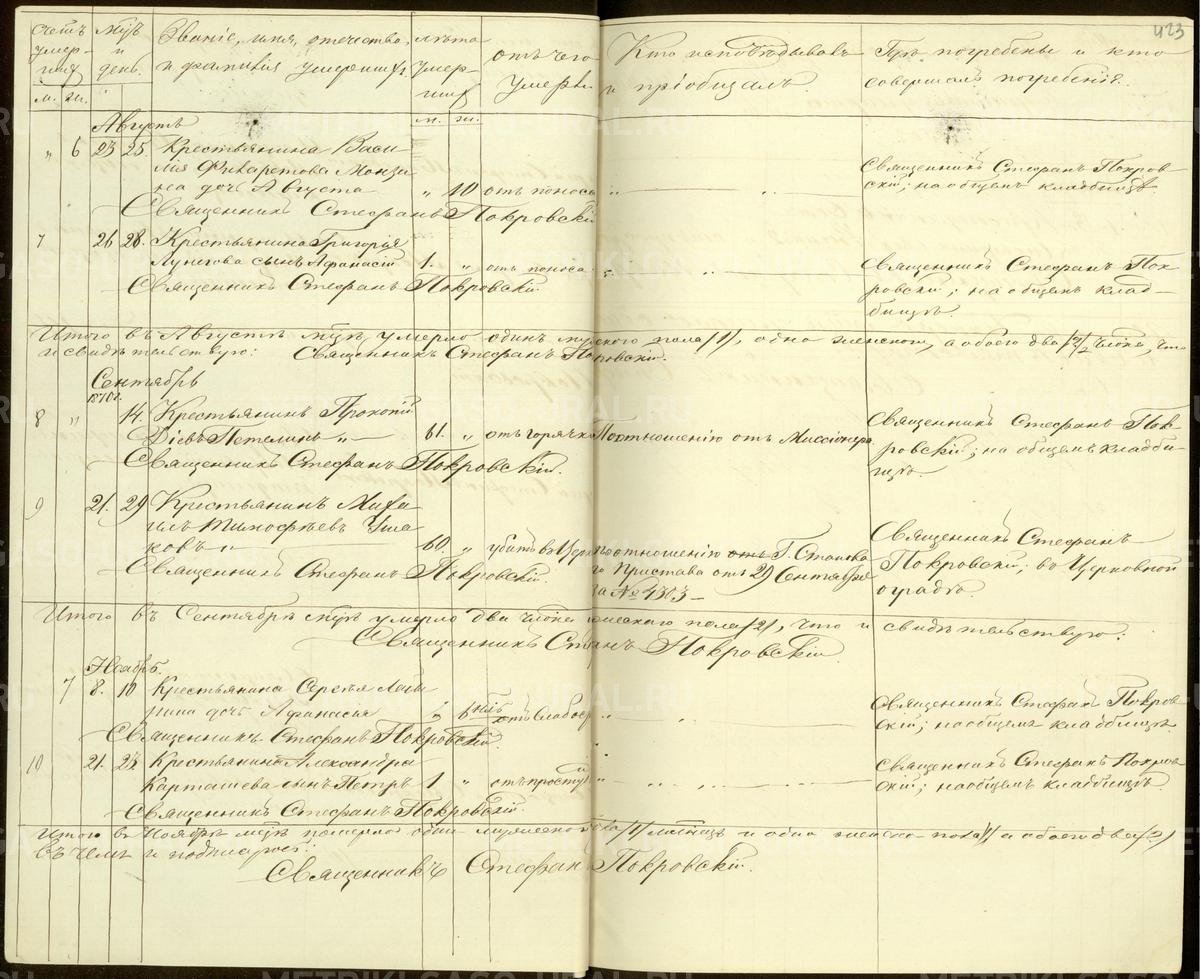 423
Счетъ умер- шихъ
м. ж.
мцъ и день.
Званіе, имя, отечество и фамилія умершихъ
лѣта умер- шихъ
м. ж.
отъ чего умерли
Кто исповѣдывалъ и пріобщалъ.
Гдѣ погребены и кто совершалъ погребеніе.
Августъ
„ 6 23 25. Крестьянина Васи
лія Филаретова
дочь Августа „ 10 отъ поноса „ „
Священникъ Стефанъ Покров
скій; на общемъ кладбищѣ.
Священникъ Стефанъ Покровскій
7 26 28. Крестьянина Григорія
Лунегова сынъ Афанасій 1. „ отъ поноса „ „
Священникъ Стефанъ Пок
ровскій; на общемъ клад-
бищѣ.
Священникъ Стефанъ Покровскій
Итого въ Августѣ мцѣ умерло одинъ мужскаго пола /1/, одна женскаго, а обоего два /2/ человѣка, что
и свидѣтельствую: Священникъ Стефанъ Покровскій.
Сентябрь
1870г.
8 „ 14. Крестьянинъ Прокопій
Діевъ Петелинъ „ 61. „ отъ горячки По отношенію отъ Миссіонера
Священникъ Стефанъ Пок-
ровскій; на общемъ кладби-
щѣ.
Священникъ Стефанъ Покровскій.
9 21. 29 Крестьянинъ Миха
илъ Тимофѣевъ Уша
ковъ „ 60. „ убитъ въ по отношенію отъ Г. Станова
го Пристава отъ 29 Сентября
за № 4303 –
Священникъ Стефанъ
Покровскій; въ Церковной
оградѣ.
Священникъ Стефанъ Покровскій.
Итого въ Сентябрѣ мцѣ умерло два человѣка мужскаго пола /2/, что и свидѣтельствую:
Священникъ Стефанъ Покровскій
Ноябрь.
7 8. 10 Крестьянина Сергѣя
дочь Афанасія „ 6 нед. отъ слабос „ „
Священникъ Стефанъ Покров
скій; на общемъ кладбищѣ.
Священникъ Стефанъ Покровскій.
10 21. 23 Крестьянина Александра
Карташева сынъ Петръ 1 „ отъ простуды „ „
Священникъ Стефанъ Покров
скій; на общемъ кладбищѣ.
Священникъ Стефанъ Покровскій.
Итого въ Ноябрѣ мцѣ померло одинъ пола /1/ и одна женскаго пола /1/ а обоего два /2/
въ чемъ и подписуюсь:
Священникъ Стефанъ Покровскій.